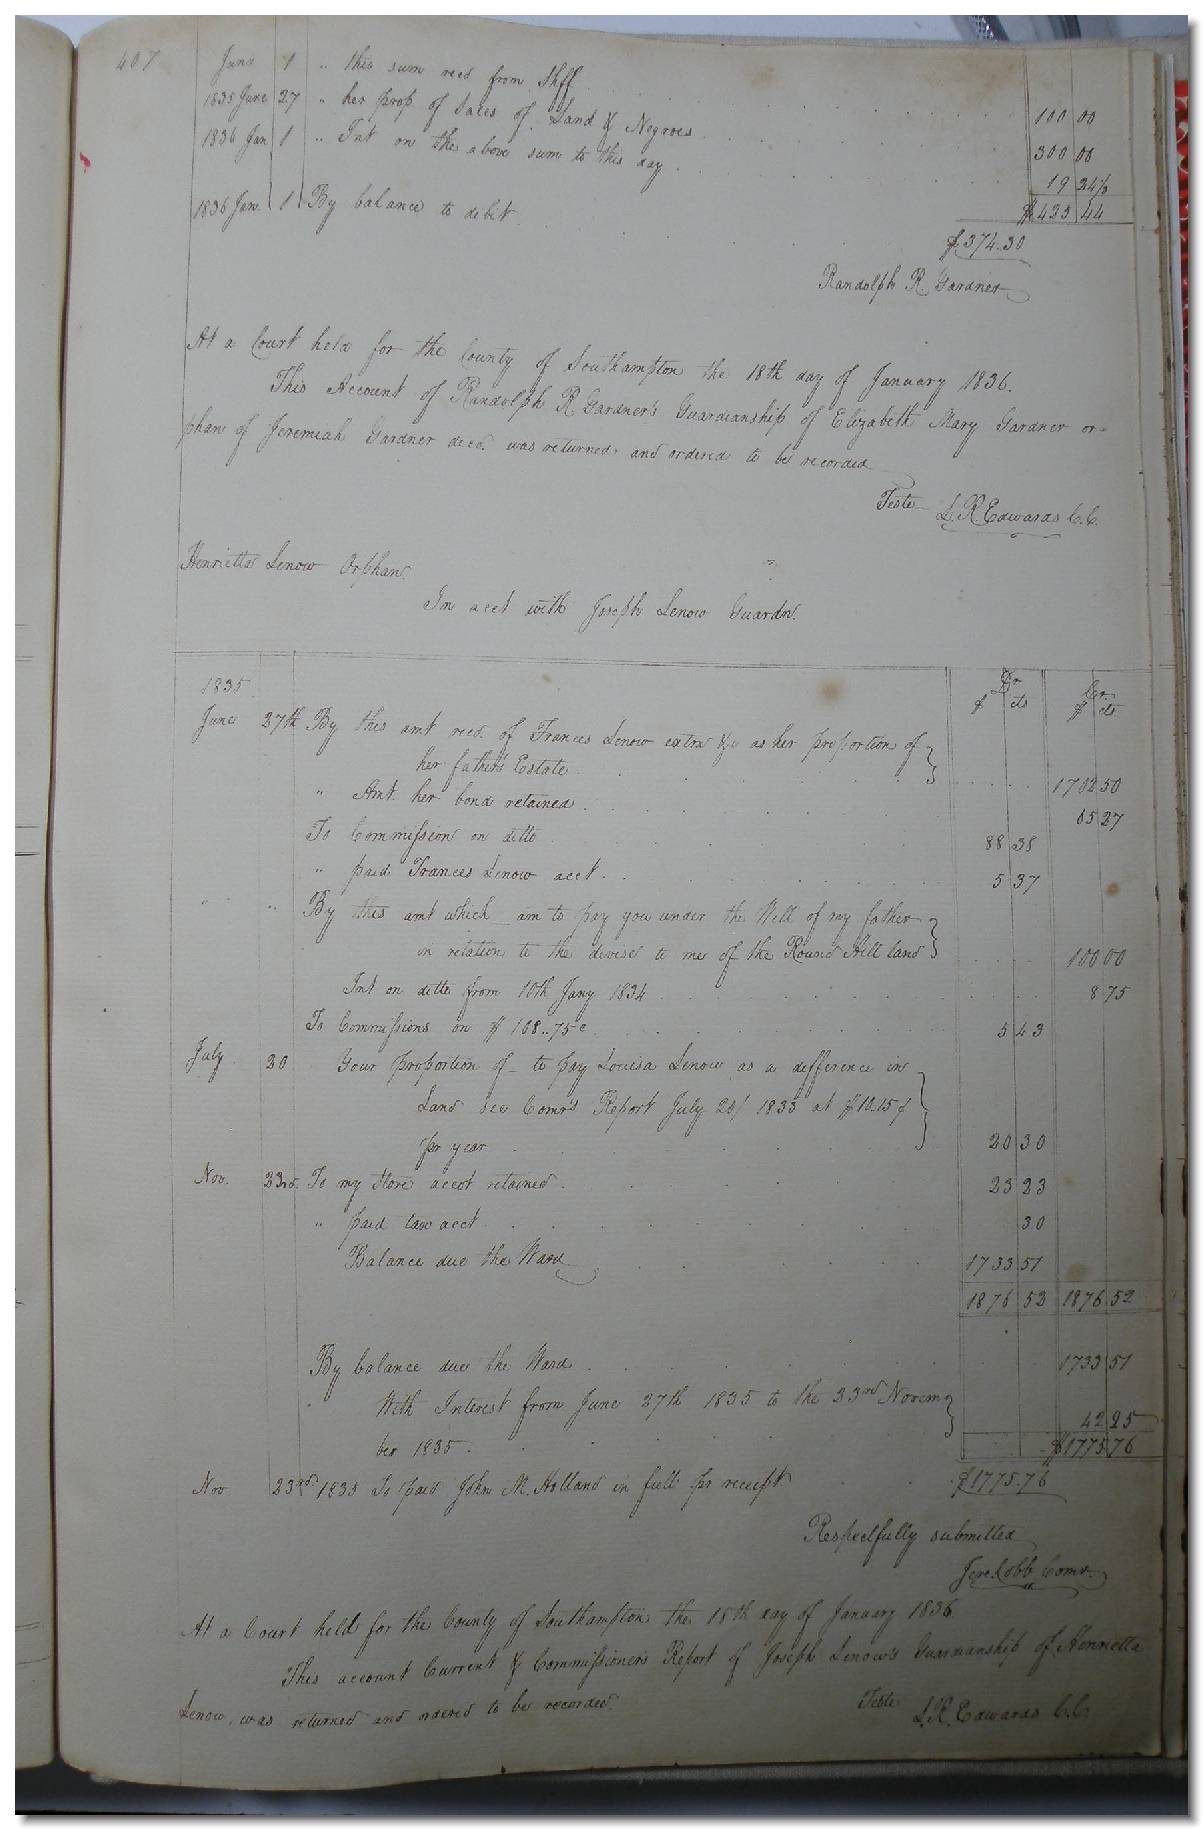 407
June 1 " this sum recd from Shff 100 00
1835 June 27 " her prop. of Sales of Land & Negroes 300 00
1836 Jan 1 " Int on the above sum to this day 19 24½
$423 44
1836 Jan. 1 By balance to debit $374.30
Randolph R. Gardner
At a Court held for the County of Southampton the 18th day of January 1836.
This Account of Randolph R Gardner's Guardianship of Elizabeth Mary Gardner or-
phan of Jeremiah Gardner decd. was returned and ordered to be recorded
Teste L. R Edwards C.C.
Henrietta Lenow Orphan.
In acct with Joseph Lenow Guardn.
1835 Dr Cr.
$ cts $ cts
June 27th By this amt recd. of Frances Lenow extrx &c as her proportion of
her father's Estate 1702 50
" Amt. her bond retained 65 27
To Commission on ditto 88 38
" paid Frances Lenow acct. 5 37
" " By this amt which am to pay you under the Will of my father
in relation to the devise to me of the Round Hill land 100 00
Int on ditto from 10th Jany 1834 8 75
To Commissions on $ 108..75c 5 43
July 20 Your proportion of to pay Louisa Lenow as a difference in
Land see Comr's Report July 20/ 1833 at $10.15
pr year 20 30
Nov. 23rd. To my Store accot retained 23 23
" paid tax acct 30
Balance due the Ward 1733 51
1876 52 1876 52
By balance due the Ward 1733 51
With Interest from June 27th 1835 to the 23rd Novem
ber 1835 42 25
$1775 76
Nov 23rd 1835 To paid John M. Holland in full pr receipt $1775.76
Respectfully submitted
Jere. Cobb Comr.
At a Court held for the County of Southampton the 18th day of January 1836
This account Current & Commissioner's Report of Joseph Lenow's Guardianship of Henrietta
Lenow, was returned and ordered to be recorded.
Teste L. R. Edwards C.C.